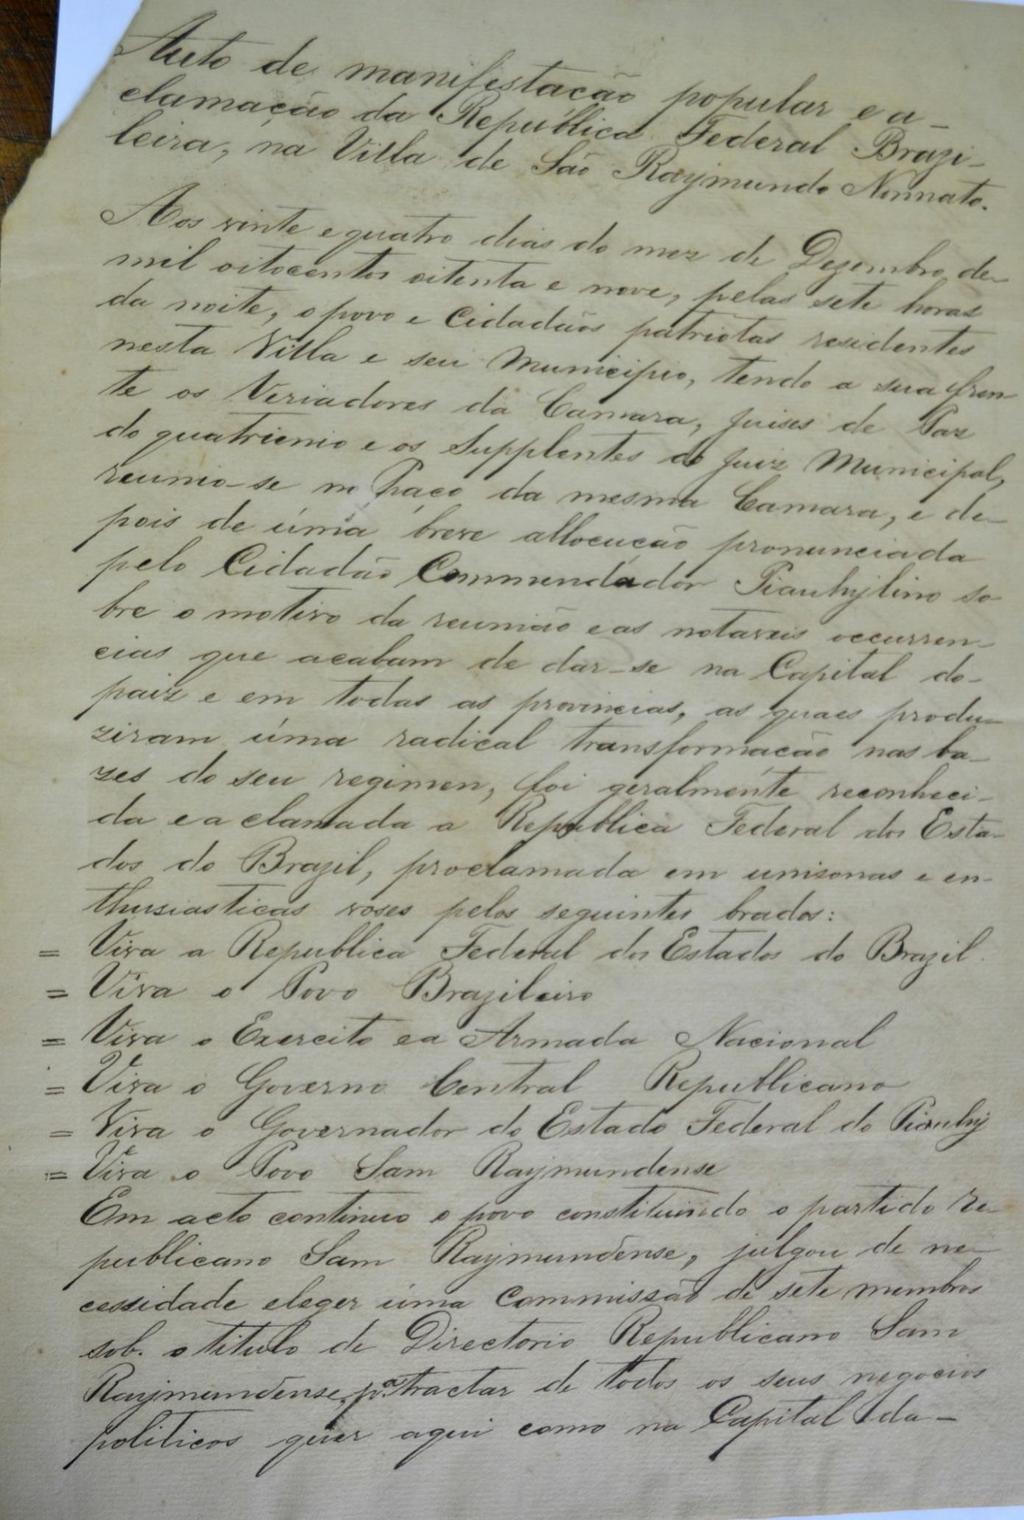 Auto de manifestação popular e a-
clamação da Républica Federal Brazi-
leira, na Villa de São Raymundo Nonnato.
Aos vinte e quatro dias do mez de Dezembro de
mil oitocentos oitenta e nove, pelas sete horas
da noite, o povo e Cidadãos patriotas residentes
nesta Villa e seu Municipio, tendo a sua fren
te os Veriadores da Camara, Juises de Paz
do quatrienio e os Supplentes do Juiz Municipal,
reunio-se no Paço da mesma Camara, e de-
pois de úma breve allocução pronunciada
pelo Cidadão Commendador Piauhylino so
bre o motivo da reunião e as notaveis occurren-
cias que acabam de dar-se na Capital do-
paiz e em todas as provincias, as quaes produ-
ziram úma radical transformação nas ba-
zes do seu regimen, foi geralmente reconheci-
da e aclamada a Republica Federal dos Esta-
dos do Brazil, proclamada em unisonas e en-
thusiasticas voses pelos seguintes brados:
= Viva a Republica Federal dos Estados do Brazil.
= Viva o Povo Brazileiro
= Viva o Exercito e a Armada Nacional
= Viva o Governo Central Republicano
= Viva o Governador do Estado Federal do Piauhy
= Viva o Povo Sam Raymundense
Em acto continuo o povo constituindo o partido Re-
publicano Sam Raymundense, julgou de ne-
cessidade eleger úma Commissão de sete membros
sob. o titulo de Directorio Republicano Sam
Raymundense, pª tractar de todos os seus negocios
politicos quer aqui como na Capital da-